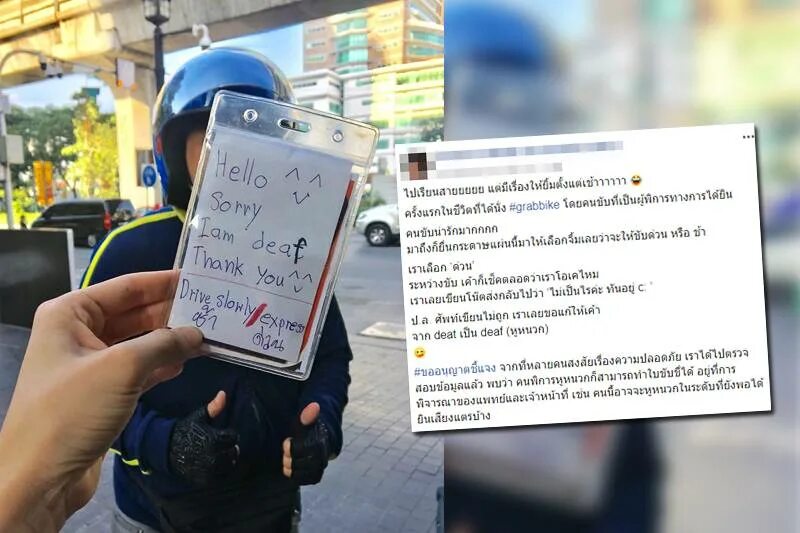 Hello ^ ^
Sorry
I am deaf
Thank you ^ ^
Drive slowly/express
ช้า ด่วน
ไปเรียนสายยยยย แต่มีเรื่องให้ยิ้มตั้งแต่เช้าาาาาา
ครั้งแรกในชีวิตที่ได้นั่ง #grabbike โดยคนขับที่เป็นผู้พิการทางการได้ยิน
คนขับน่ารักมากกกก
มาถึงก็ยื่นกระดาษแผ่นนี้มาให้เลือกจิ้มเลยว่าจะให้ขับด่วน หรือ ช้า
เราเลือก 'ด่วน'
ระหว่างขับ เค้าก็เช็คตลอดว่าเราโอเคไหม
เราเลยเขียนโน้ตส่งกลับไปว่า 'ไม่เป็นไรค่ะ ทันอยู่ c: '
ป.ล. ศัพท์เขียนไม่ถูก เราเลยขอแก้ให้เค้า
จาก deat เป็น deaf (หูหนวก)
#ขออนุญาตชี้แจง จากที่หลายคนสงสัยเรื่องความปลอดภัย เราได้ไปตรวจ
สอบข้อมูลแล้ว พบว่า คนพิการหูหนวกก็สามารถทำใบขับขี่ได้ อยู่ที่การ
พิจารณาของแพทย์และเจ้าหน้าที่ เช่น คนนี้อาจจะหูหนวกในระดับที่ยังพอได้
ยินเสียงแตรบ้าง